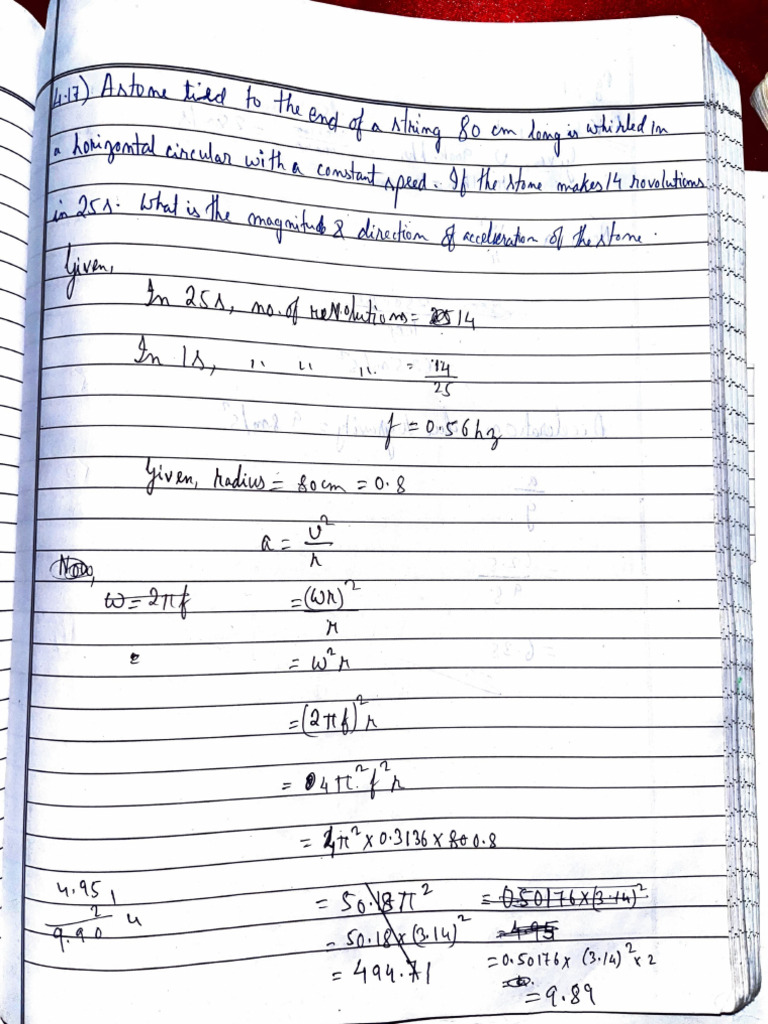 4.17) A stone tied to the end of a string 80 cm long is whirled in
a horizontal circular with a constant speed. If the stone makes 14 rovolutions
in 25s. What is the magnitude & direction of acceleration of the stone.
Given,
In 25s, no. of revolutions = 14
In 1s, " " " = 14/25
f = 0.56hz
Given, radius = 80cm = 0.8
a = v²/r
Now,
ω = 2πf = (ωr)²/r
= ω²r
= (2πf)²r
= 4π²f²r
= 4π² × 0.3136 × 0.8
4.95
2
9.90
= 50.18π² = 0.50176×(3.14)²
= 50.18×(3.14)² = 4.95
= 494.71 = 0.50176 × (3.14)² × 2
= 9.89